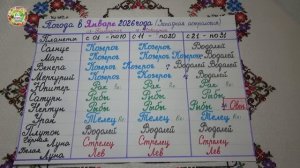 Погода в Январе 2026 года (Западная астрология)
Планеты с 01 - по 10 с 11 - по 20 с 21 - по 31
Солнце Козерог Козерог Водолей
Марс Козерог Козерог Козерог Водолей
Венера Козерог Козерог Водолей
Меркурий Козерог Козерог Водолей
Юпитер Рак Рак Рак
Сатурн Рыбы Рыбы Рыбы
Нептун Рыбы Рыбы Рыбы Овен
Уран Телец Телец Телец
Плутон Водолей Водолей Водолей
Черная Луна Стрелец Стрелец Стрелец
Белая Луна Лев Лев Лев